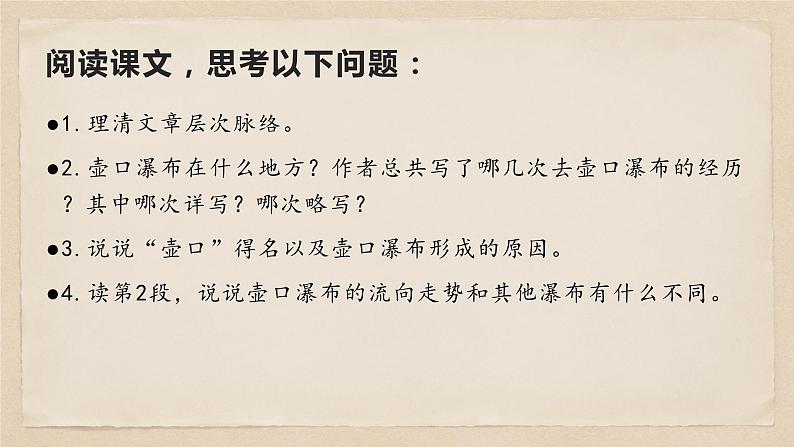 阅读课文，思考以下问题：
●1.理清文章层次脉络。
●2.壶口瀑布在什么地方？作者总共写了哪几次去壶口瀑布的经历
？其中哪次详写？哪次略写？
●3.说说“壶口”得名以及壶口瀑布形成的原因。
●4.读第2段，说说壶口瀑布的流向走势和其他瀑布有什么不同。